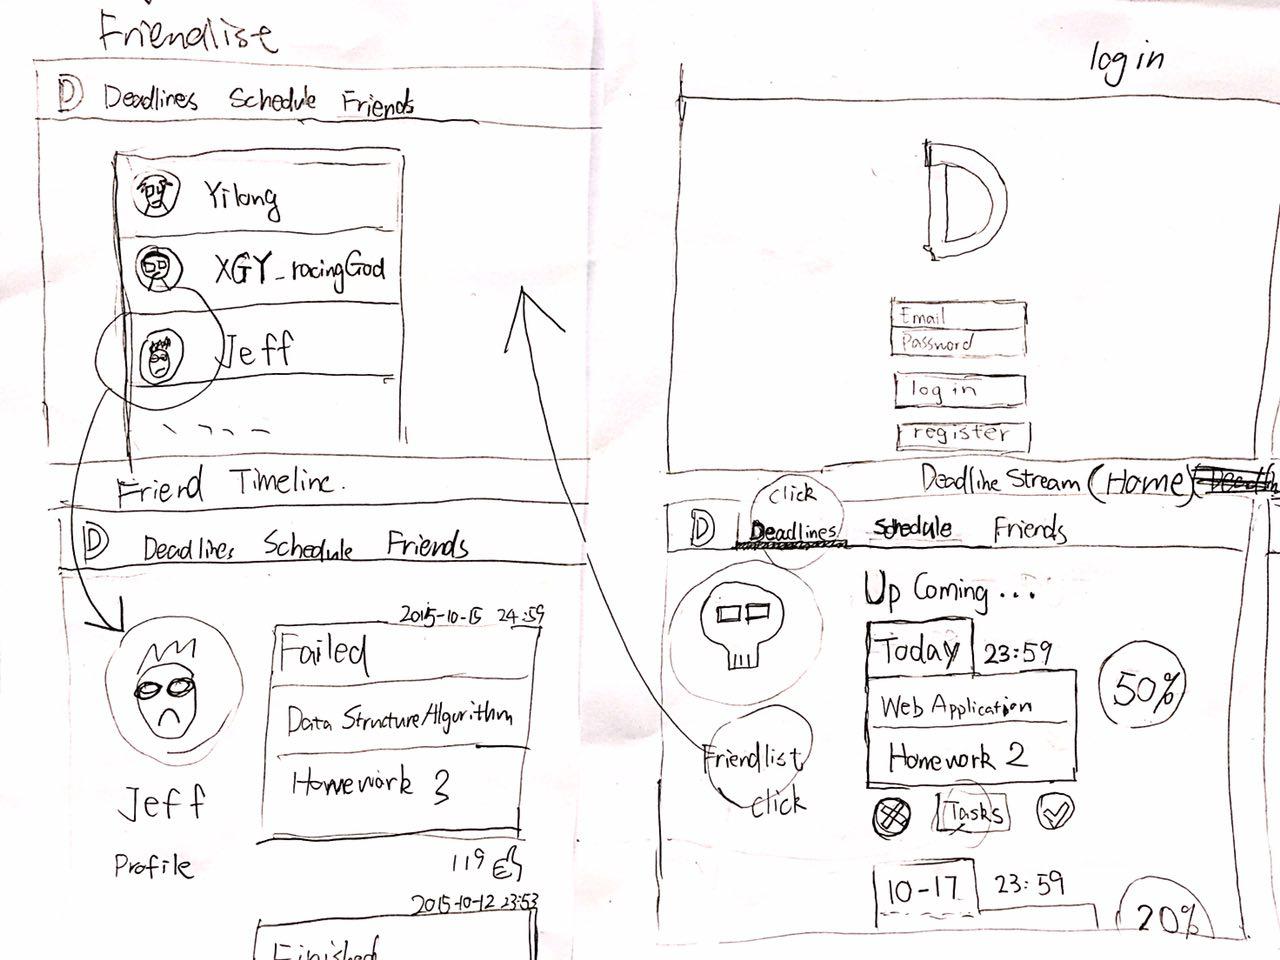 Friendlist
D Deadlines Schedule Friends
Yilong
XGY_racingGod
Jeff
Friend Timeline.
D Deadlines Schedule Friends
2015-10-15 24:59
Failed
Data Structure/Algorithm
Homework 3
Jeff
Profile
119
2015-10-12 23:53
Finished
log in
D
Email
Password
log in
register
Deadline Stream (Home)
click
D Deadlines Schedule Friends
Up Coming ...
Today 23:59
50%
Web Application
Homework 2
Friendlist
click
Tasks
10-17 23:59
20%